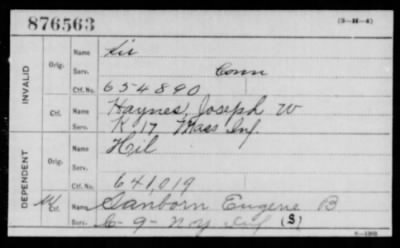 876563
(3-H-4)
INVALID
Orig.
Name
Serv. Conn
Ctf. No. 654890
Ctf.
Name Haynes, Joseph W
Serv. K. 17 Mass Inf.
DEPENDENT
Orig.
Name Hil
Serv.
Ctf. No. 641,019
Ctf.
Name Sanborn Eugene B
Serv. 6-9- Inf (S)